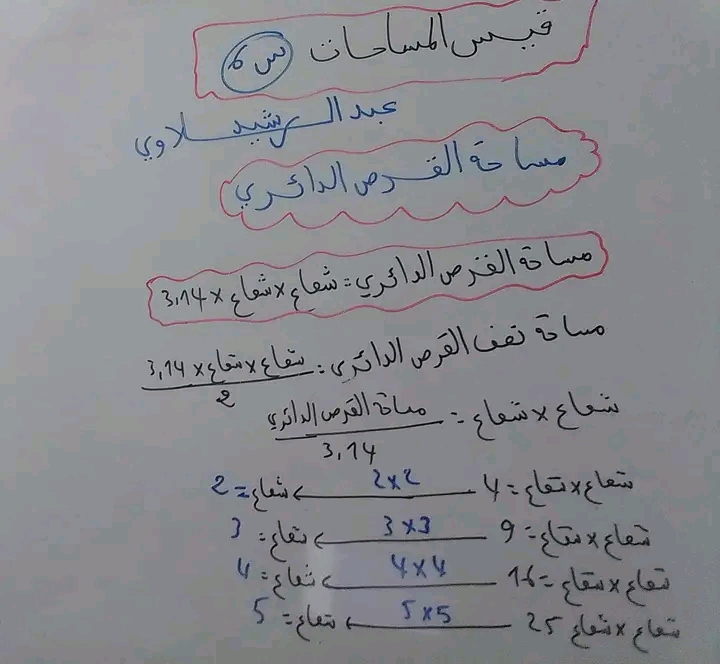 قيس المساحات س6
عبد الرشيد سلاوي
مساحة القرص الدائري
مساحة القرص الدائري = شعاع × شعاع × 3,14
مساحة نصف القرص الدائري = شعاع × شعاع × 3,14 / 2
شعاع × شعاع = مساحة القرص الدائري / 3,14
شعاع × شعاع = 4 ← 2×2 شعاع = 2
شعاع × شعاع = 9 ← 3×3 شعاع = 3
شعاع × شعاع = 16 ← 4×4 شعاع = 4
شعاع × شعاع 25 ← 5×5 شعاع = 5